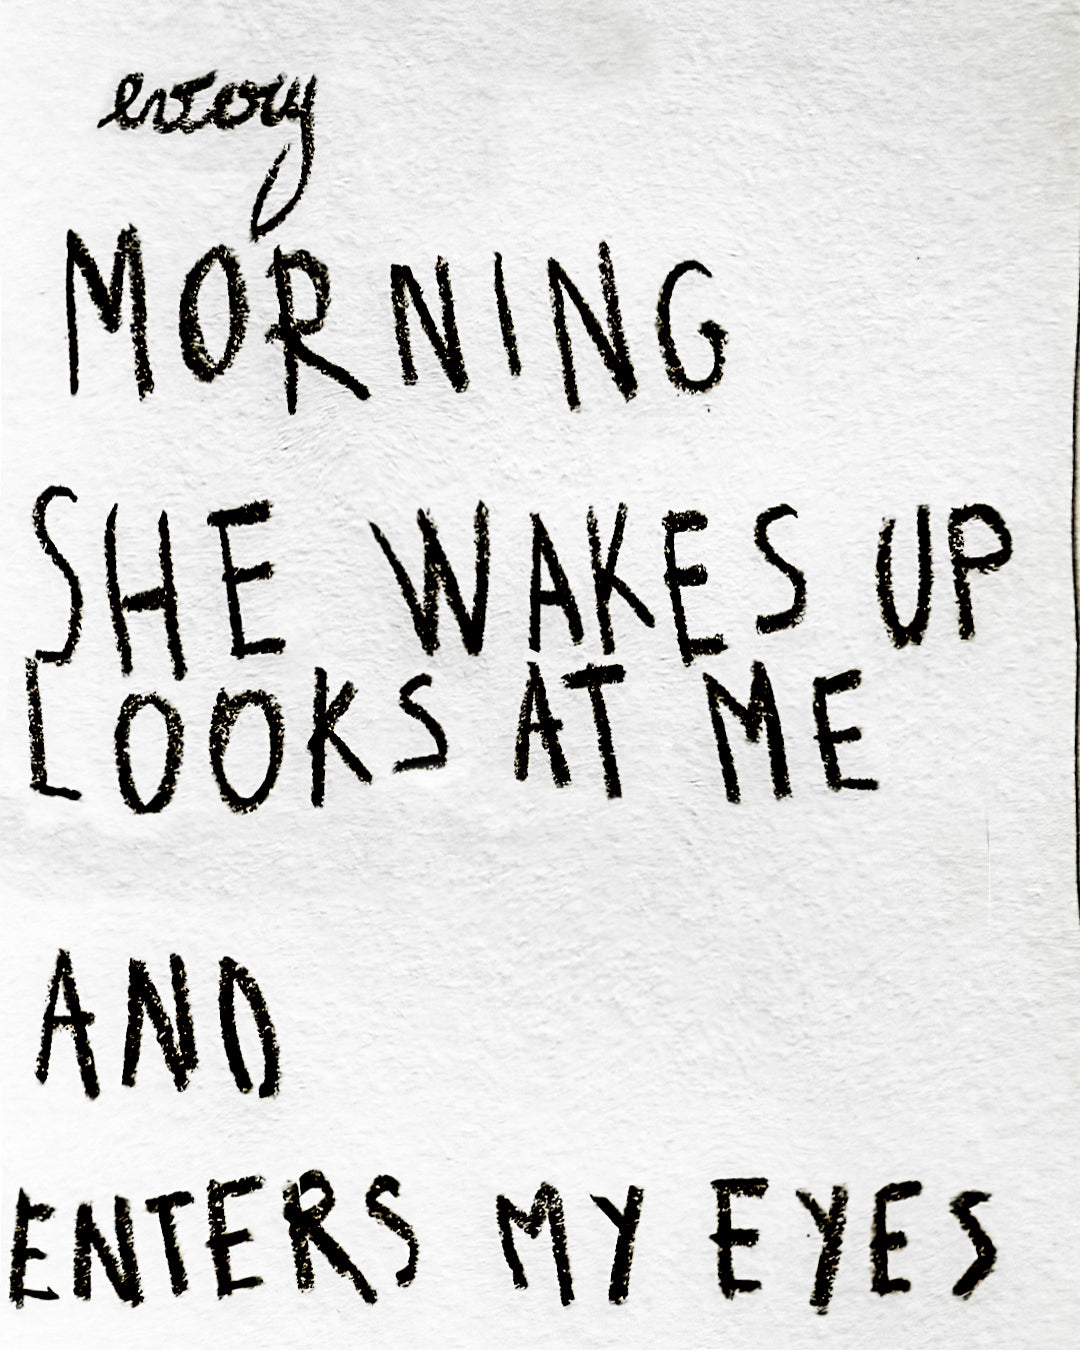 entory
MORNING
SHE WAKES UP
LOOKS AT ME
AND
ENTERS MY EYES